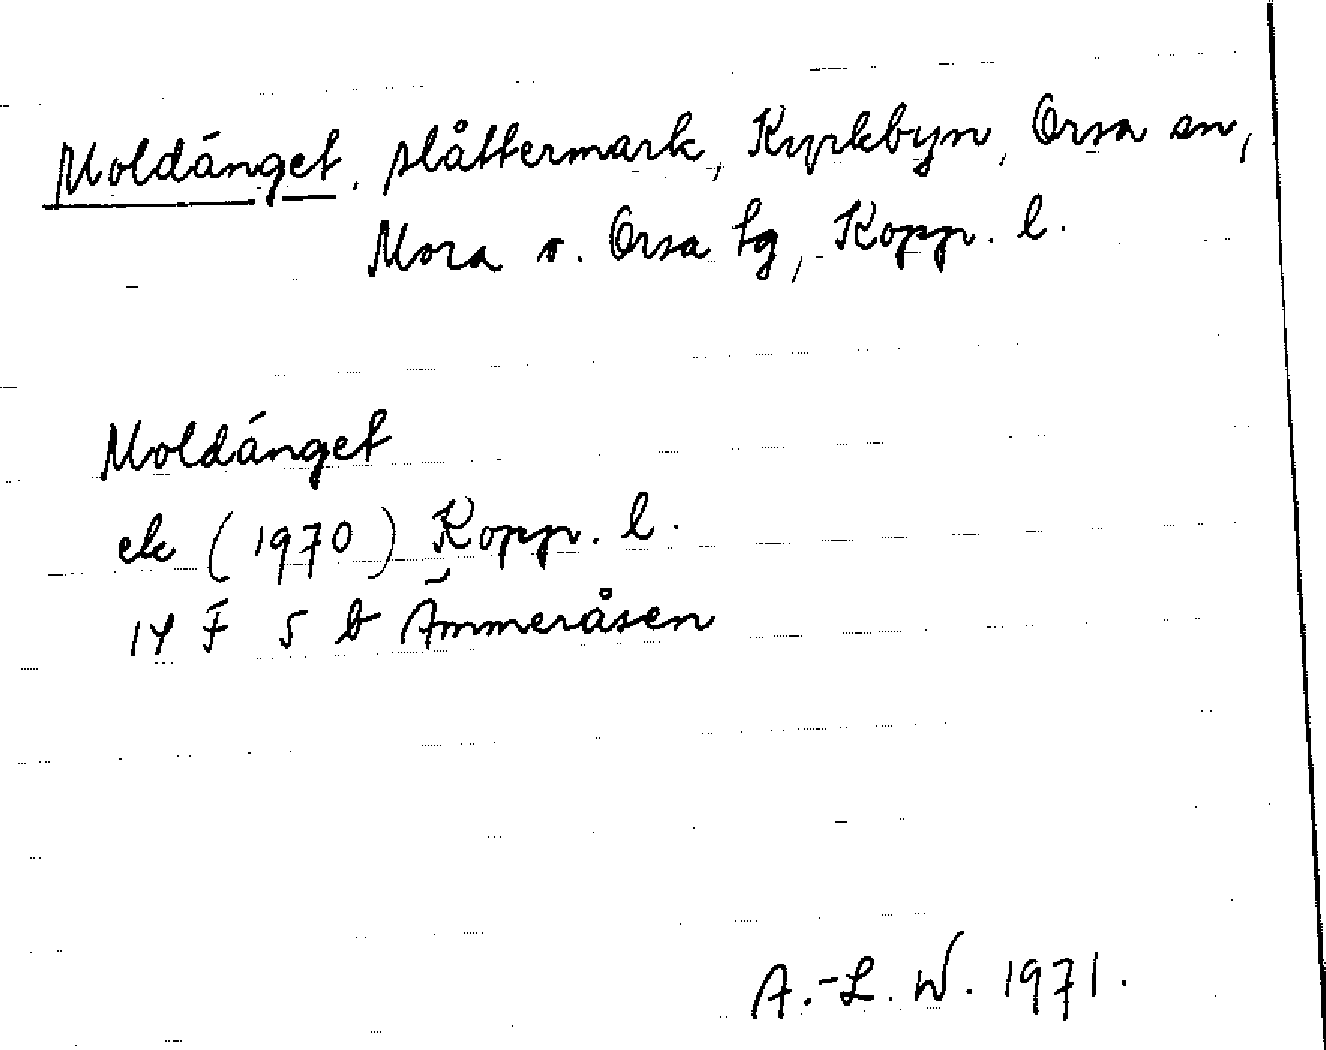 Moldänget, slåttermark, Kyrkbyn, Orsa sn,
Mora o. Orsa tg, Kopp. l.
Moldänget
ek (1970) Kopp. l.
14 F 5 b Ämmeråsen
A.-L. W. 1971.